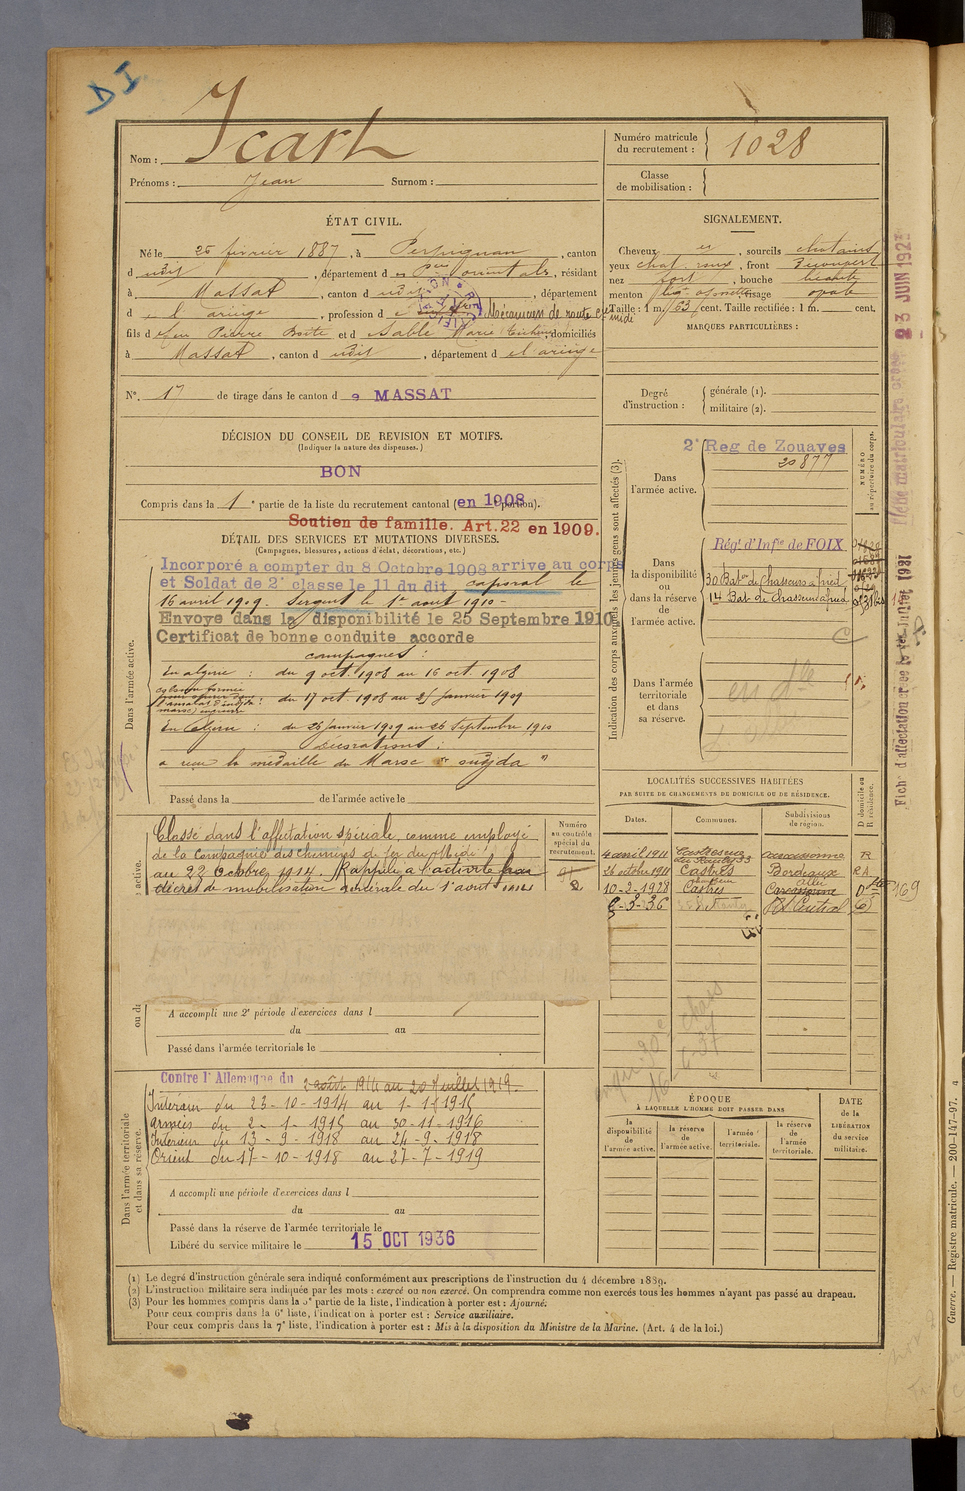 DI
Nom : Icart
Prénoms : Jean Surnom :
Numéro matricule du recrutement : 1028
Classe de mobilisation :
ÉTAT CIVIL.
Né le 25 février 1887, à Perpignan, canton
d udit, département d es Pées orientales, résidant
à Massat, canton d udit, département
d e l'ariège, profession d Mécanicien de route Cie midi
fils d feu Pierre Boite et d Sable Marie, domiciliés
à Massat, canton d udit, département d e l'ariège
N°. 17 de tirage dans le canton d e MASSAT
SIGNALEMENT.
Cheveux , sourcils chatains
yeux chat. roux, front découvert
nez fort, bouche béante
menton visage
Taille : 1 m. 63 cent. Taille rectifiée : 1 m. cent.
MARQUES PARTICULIÈRES :
Degré d'instruction : générale (1).
militaire (2).
DÉCISION DU CONSEIL DE REVISION ET MOTIFS.
(Indiquer la nature des dispenses.)
BON
Compris dans la 1e partie de la liste du recrutement cantonal (en 1908 portion).
Soutien de famille. Art. 22 en 1909.
DÉTAIL DES SERVICES ET MUTATIONS DIVERSES.
(Campagnes, blessures, actions d'éclat, décorations, etc.)
Dans l'armée active.
Incorporé a compter du 8 Octobre 1908 arrive au corps
et Soldat de 2e classe le 11 du dit caporal le
16 avril 1909. Sergent le 1er aout 1910 -
Envoye dans la disponibilité le 25 Septembre 1910
Certificat de bonne conduite accorde
campagnes :
En algérie : du 9 oct. 1908 au 16 oct. 1908
du 17 oct 1908 au 25 janvier 1909
En Algérie : du 26 janvier 1909 au 26 Septembre 1910
Décorations :
a reçu la médaille du Maroc " oudjda "
Passé dans la de l'armée active le
Indication des corps auxquels les jeunes gens sont affectés (3).
Dans l'armée active.
2e Reg de Zouaves
20877
NUMÉRO au répertoire du corps.
Dans la disponibilité ou dans la réserve de l'armée active.
Régt d'Infie de FOIX
30 Baton de Chasseurs à pied
14 Bat. de Chasseurs à pied
Dans l'armée territoriale et dans sa réserve.
Fiche matriculaire créée 23 JUIN 1927
Fiche d'affectation créée le Juillet 1931
LOCALITÉS SUCCESSIVES HABITÉES
PAR SUITE DE CHANGEMENTS DE DOMICILE OU DE RÉSIDENCE.
Dates. Communes. Subdivisions de région. D domicile ou R résidence.
4 avril 1911 Carcassonne R
26 octobre 1911 Castres Bordeaux RA
10-2-1928 Castres D
6-3-36 Central
169
active.
Classé dans l'affectation spéciale, comme employé
de la Compagnie des chemins de fer du Midi
au 22 octobre 1914. Rappelé à l'activité par
décret de mobilisation générale du 1er aout 1914
Numéro au contrôle spécial du recrutement.
A accompli une 2e période d'exercices dans l
du au
Passé dans l'armée territoriale le
Dans l'armée territoriale et dans sa réserve.
Contre l'Allemagne du 2 août 1914 au 20 Juillet 1919 -
Intérieur du 23-10-1914 au 1-1-1915
armées du 2-1-1915 au 30-11-1916
Intérieur du 13-9-1918 au 24-9-1918
Orient du 17-10-1918 au 27-7-1919
A accompli une période d'exercices dans l
du au
Passé dans la réserve de l'armée territoriale le
Libéré du service militaire le 15 OCT 1936
ÉPOQUE
À LAQUELLE L'HOMME DOIT PASSER DANS
la disponibilité de l'armée active.
la réserve de l'armée active.
l'armée territoriale.
la réserve de l'armée territoriale.
DATE de la LIBÉRATION du service militaire.
(1) Le degré d'instruction générale sera indiqué conformément aux prescriptions de l'instruction du 4 décembre 1889.
(2) L'instruction militaire sera indiquée par les mots : exercé ou non exercé. On comprendra comme non exercés tous les hommes n'ayant pas passé au drapeau.
(3) Pour les hommes compris dans la 5e partie de la liste, l'indication à porter est : Ajourné.
Pour ceux compris dans la 6e liste, l'indication à porter est : Service auxiliaire.
Pour ceux compris dans la 7e liste, l'indication à porter est : Mis à la disposition du Ministre de la Marine. (Art. 4 de la loi.)
Guerre. — Registre matricule. — 200-147-97.